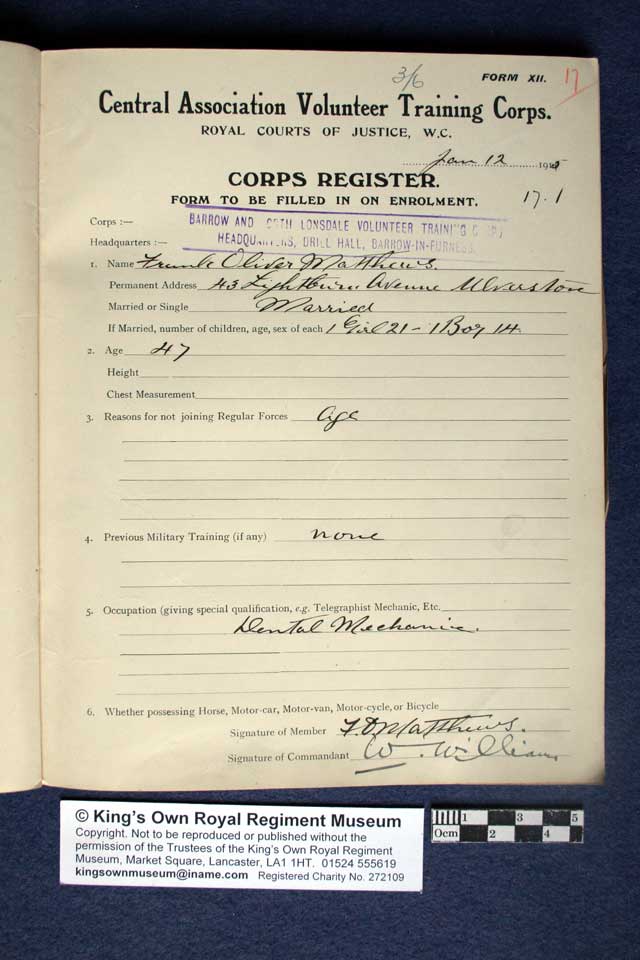 3/6
FORM XII.
17
Central Association Volunteer Training Corps.
ROYAL COURTS OF JUSTICE, W.C.
Jan 12 1915
CORPS REGISTER.
FORM TO BE FILLED IN ON ENROLMENT.
17.1
Corps :—
BARROW AND LONSDALE VOLUNTEER TRAINING
Headquarters :—
HEADQUARTERS, DRILL HALL, BARROW-IN-FURNESS
1. Name Frank Oliver Matthews.
Permanent Address 43 Lightburn Avenue Ulverston
Married or Single Married
If Married, number of children, age, sex of each 1 Girl 21 - 1 Boy 14
2. Age 47
Height
Chest Measurement
3. Reasons for not joining Regular Forces age
4. Previous Military Training (if any) none
5. Occupation (giving special qualification, e.g. Telegraphist Mechanic, Etc.
Dental Mechanic.
6. Whether possessing Horse, Motor-car, Motor-van, Motor-cycle, or Bicycle
Signature of Member F. O Matthews.
Signature of Commandant W. Williams
© King's Own Royal Regiment Museum
Copyright. Not to be reproduced or published without the
permission of the Trustees of the King's Own Royal Regiment
Museum, Market Square, Lancaster, LA1 1HT. 01524 555619
kingsownmuseum@iname.com Registered Charity No. 272109
1 3 5
0cm 2 4